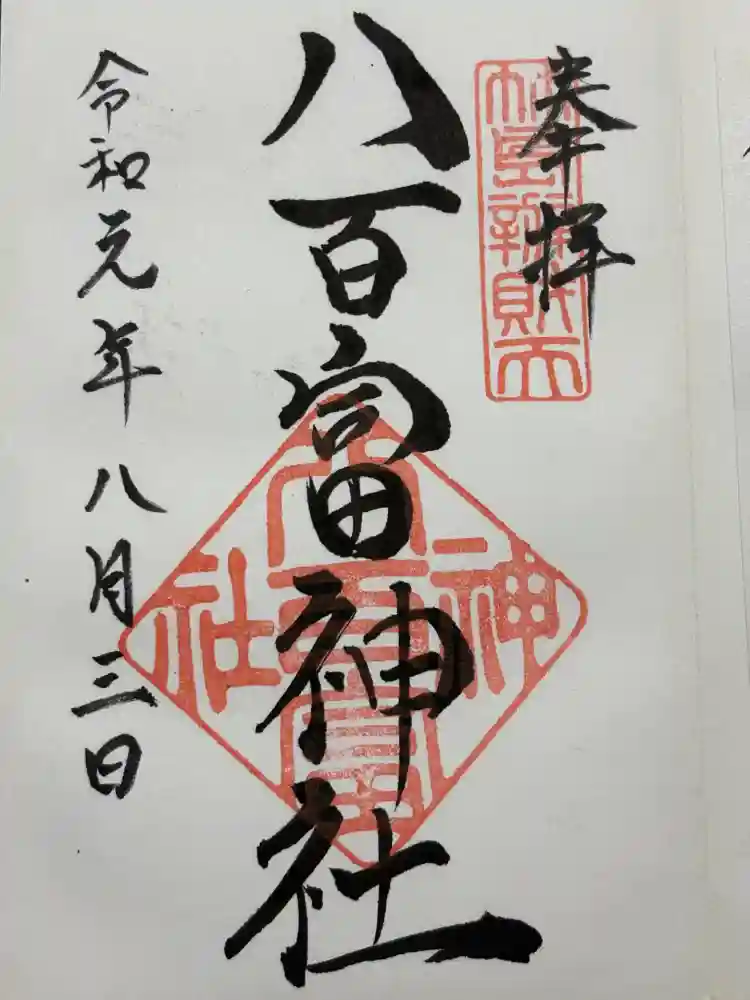 奉拝
八百富神社
令和元年八月三日
八百富
神
社